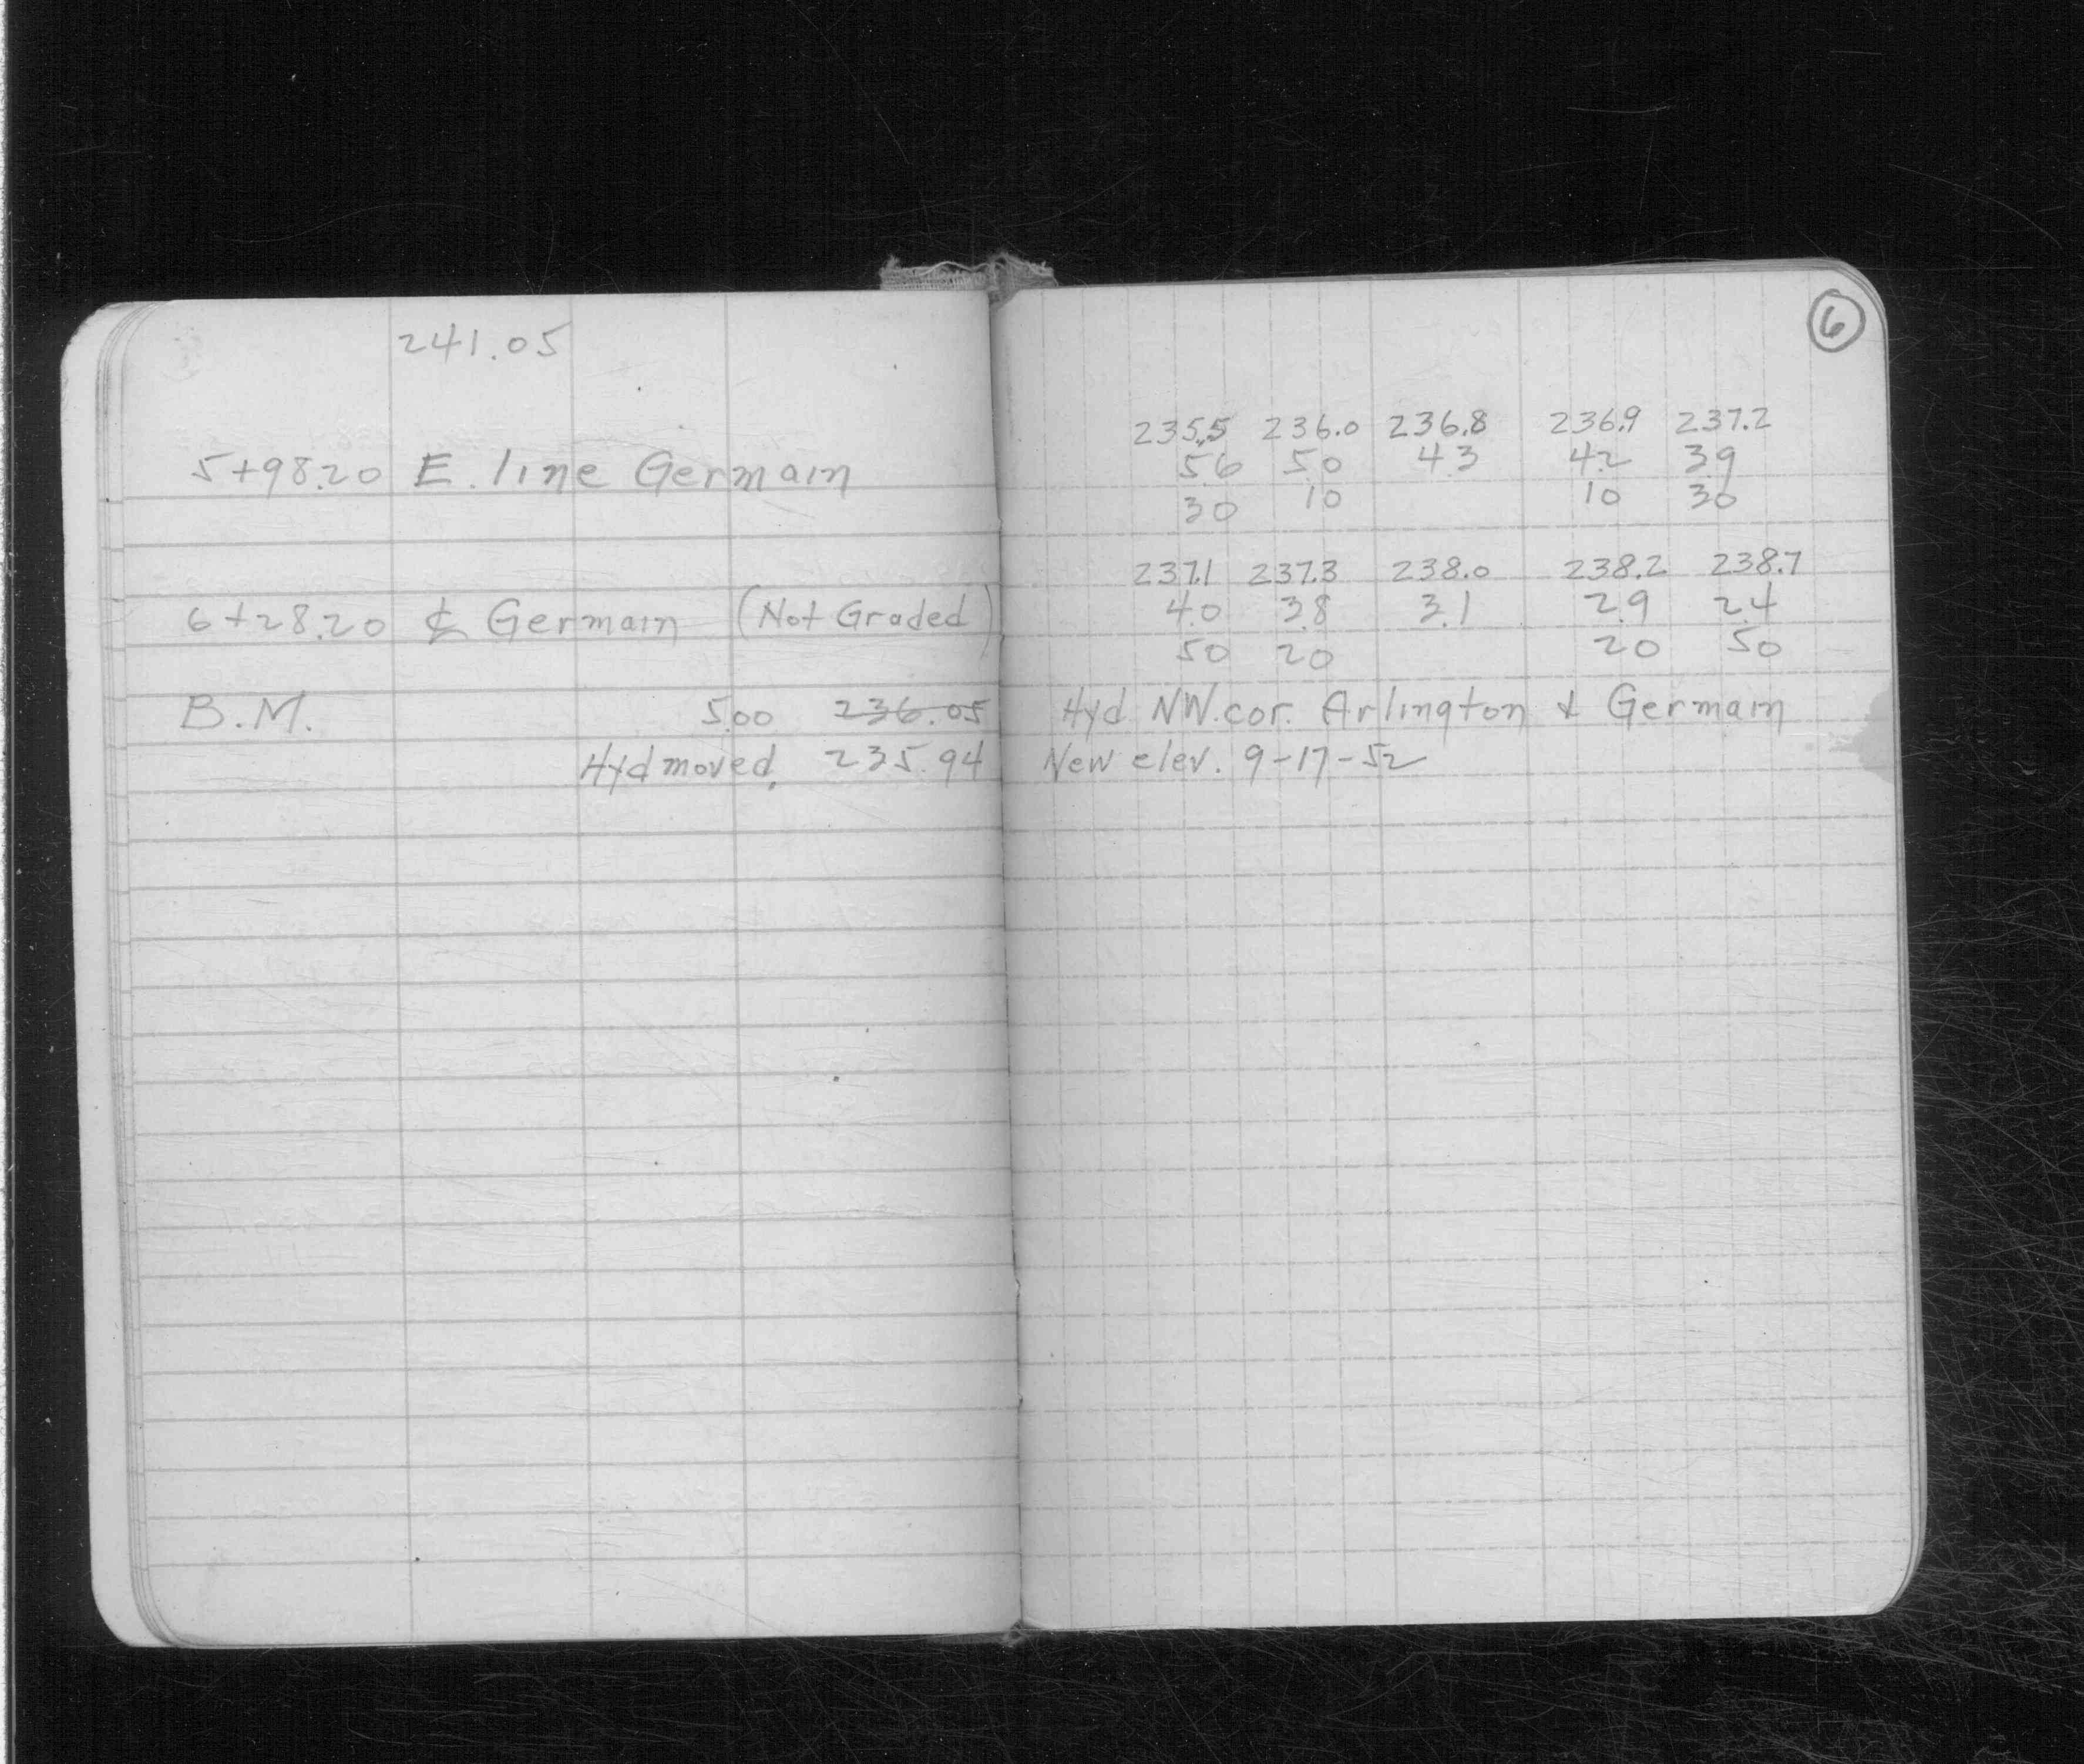 241.05
5+98.20 E. line Germain
6+28.20 ℄ Germain (Not Graded)
B.M. 5.00 236.05
Hyd moved. 235.94
6
235.5 236.0 236.8 236.9 237.2
5.6 5.0 4.3 4.2 3.9
30 10 10 30
237.1 237.3 238.0 238.2 238.7
4.0 3.8 3.1 2.9 2.4
50 20 20 50
Hyd NW. cor. Arlington & Germain
New elev. 9-17-52